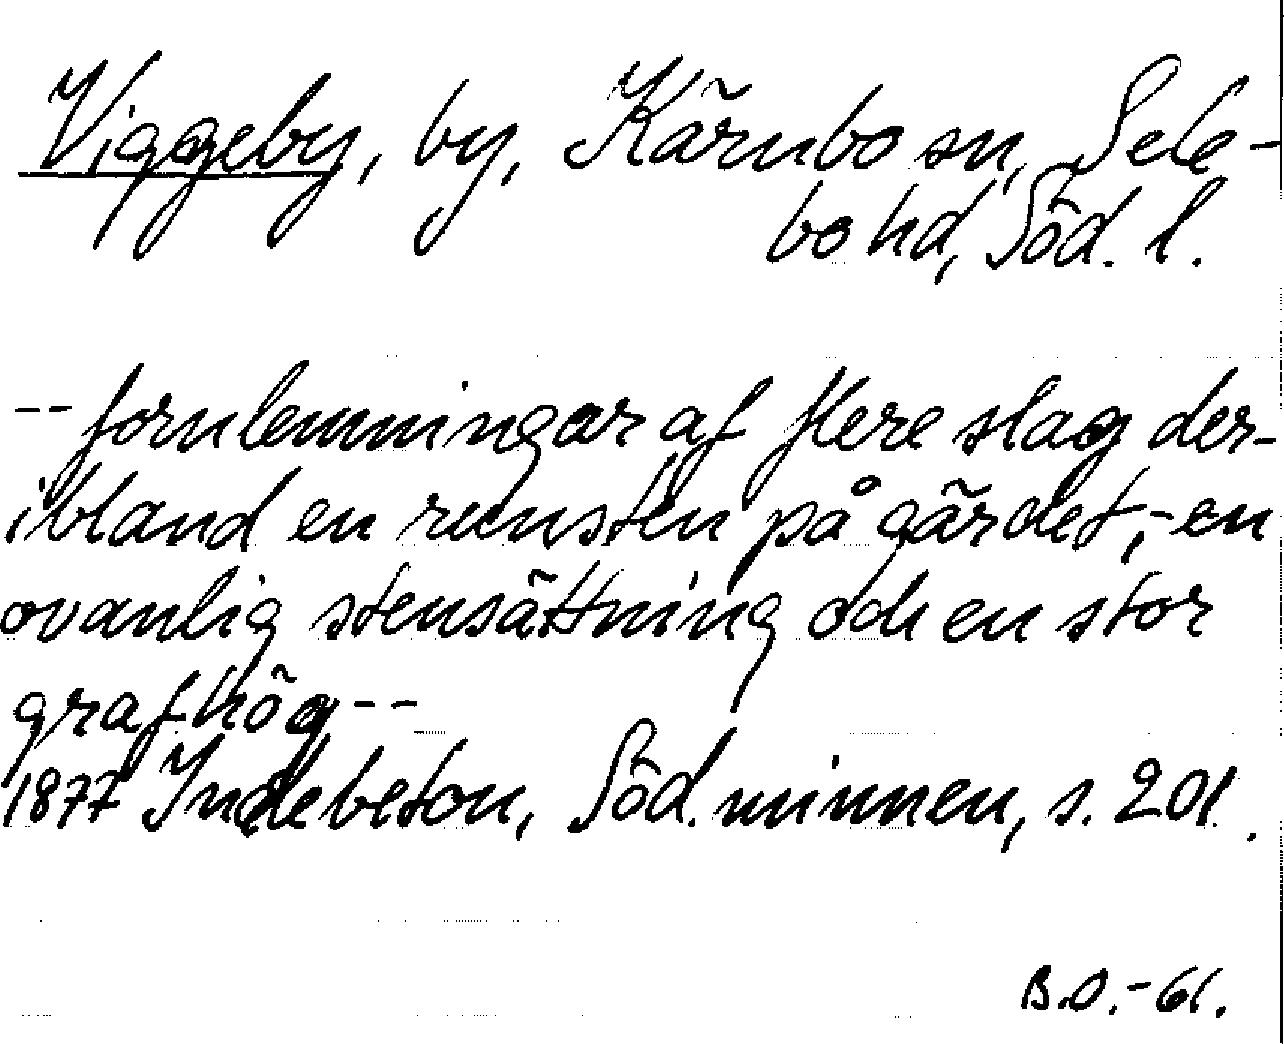 Viggeby, by, Kärnbo sn, Sele-
bo hd, Söd. l.
-- fornlemningar af flere slag der-
ibland en runsten på gärdet, - en
ovanlig stensättning och en stor
grafhög --
1877 Indebetou, Söd. minnen, s. 201.
B.O.-61.